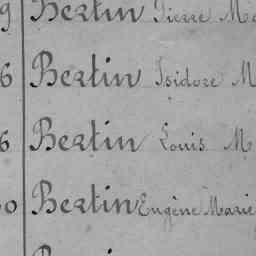 9 Bertin Pierre Ma
6 Bertin Isidore M
6 Bertin Louis M
0 Bertin Eugène Marie